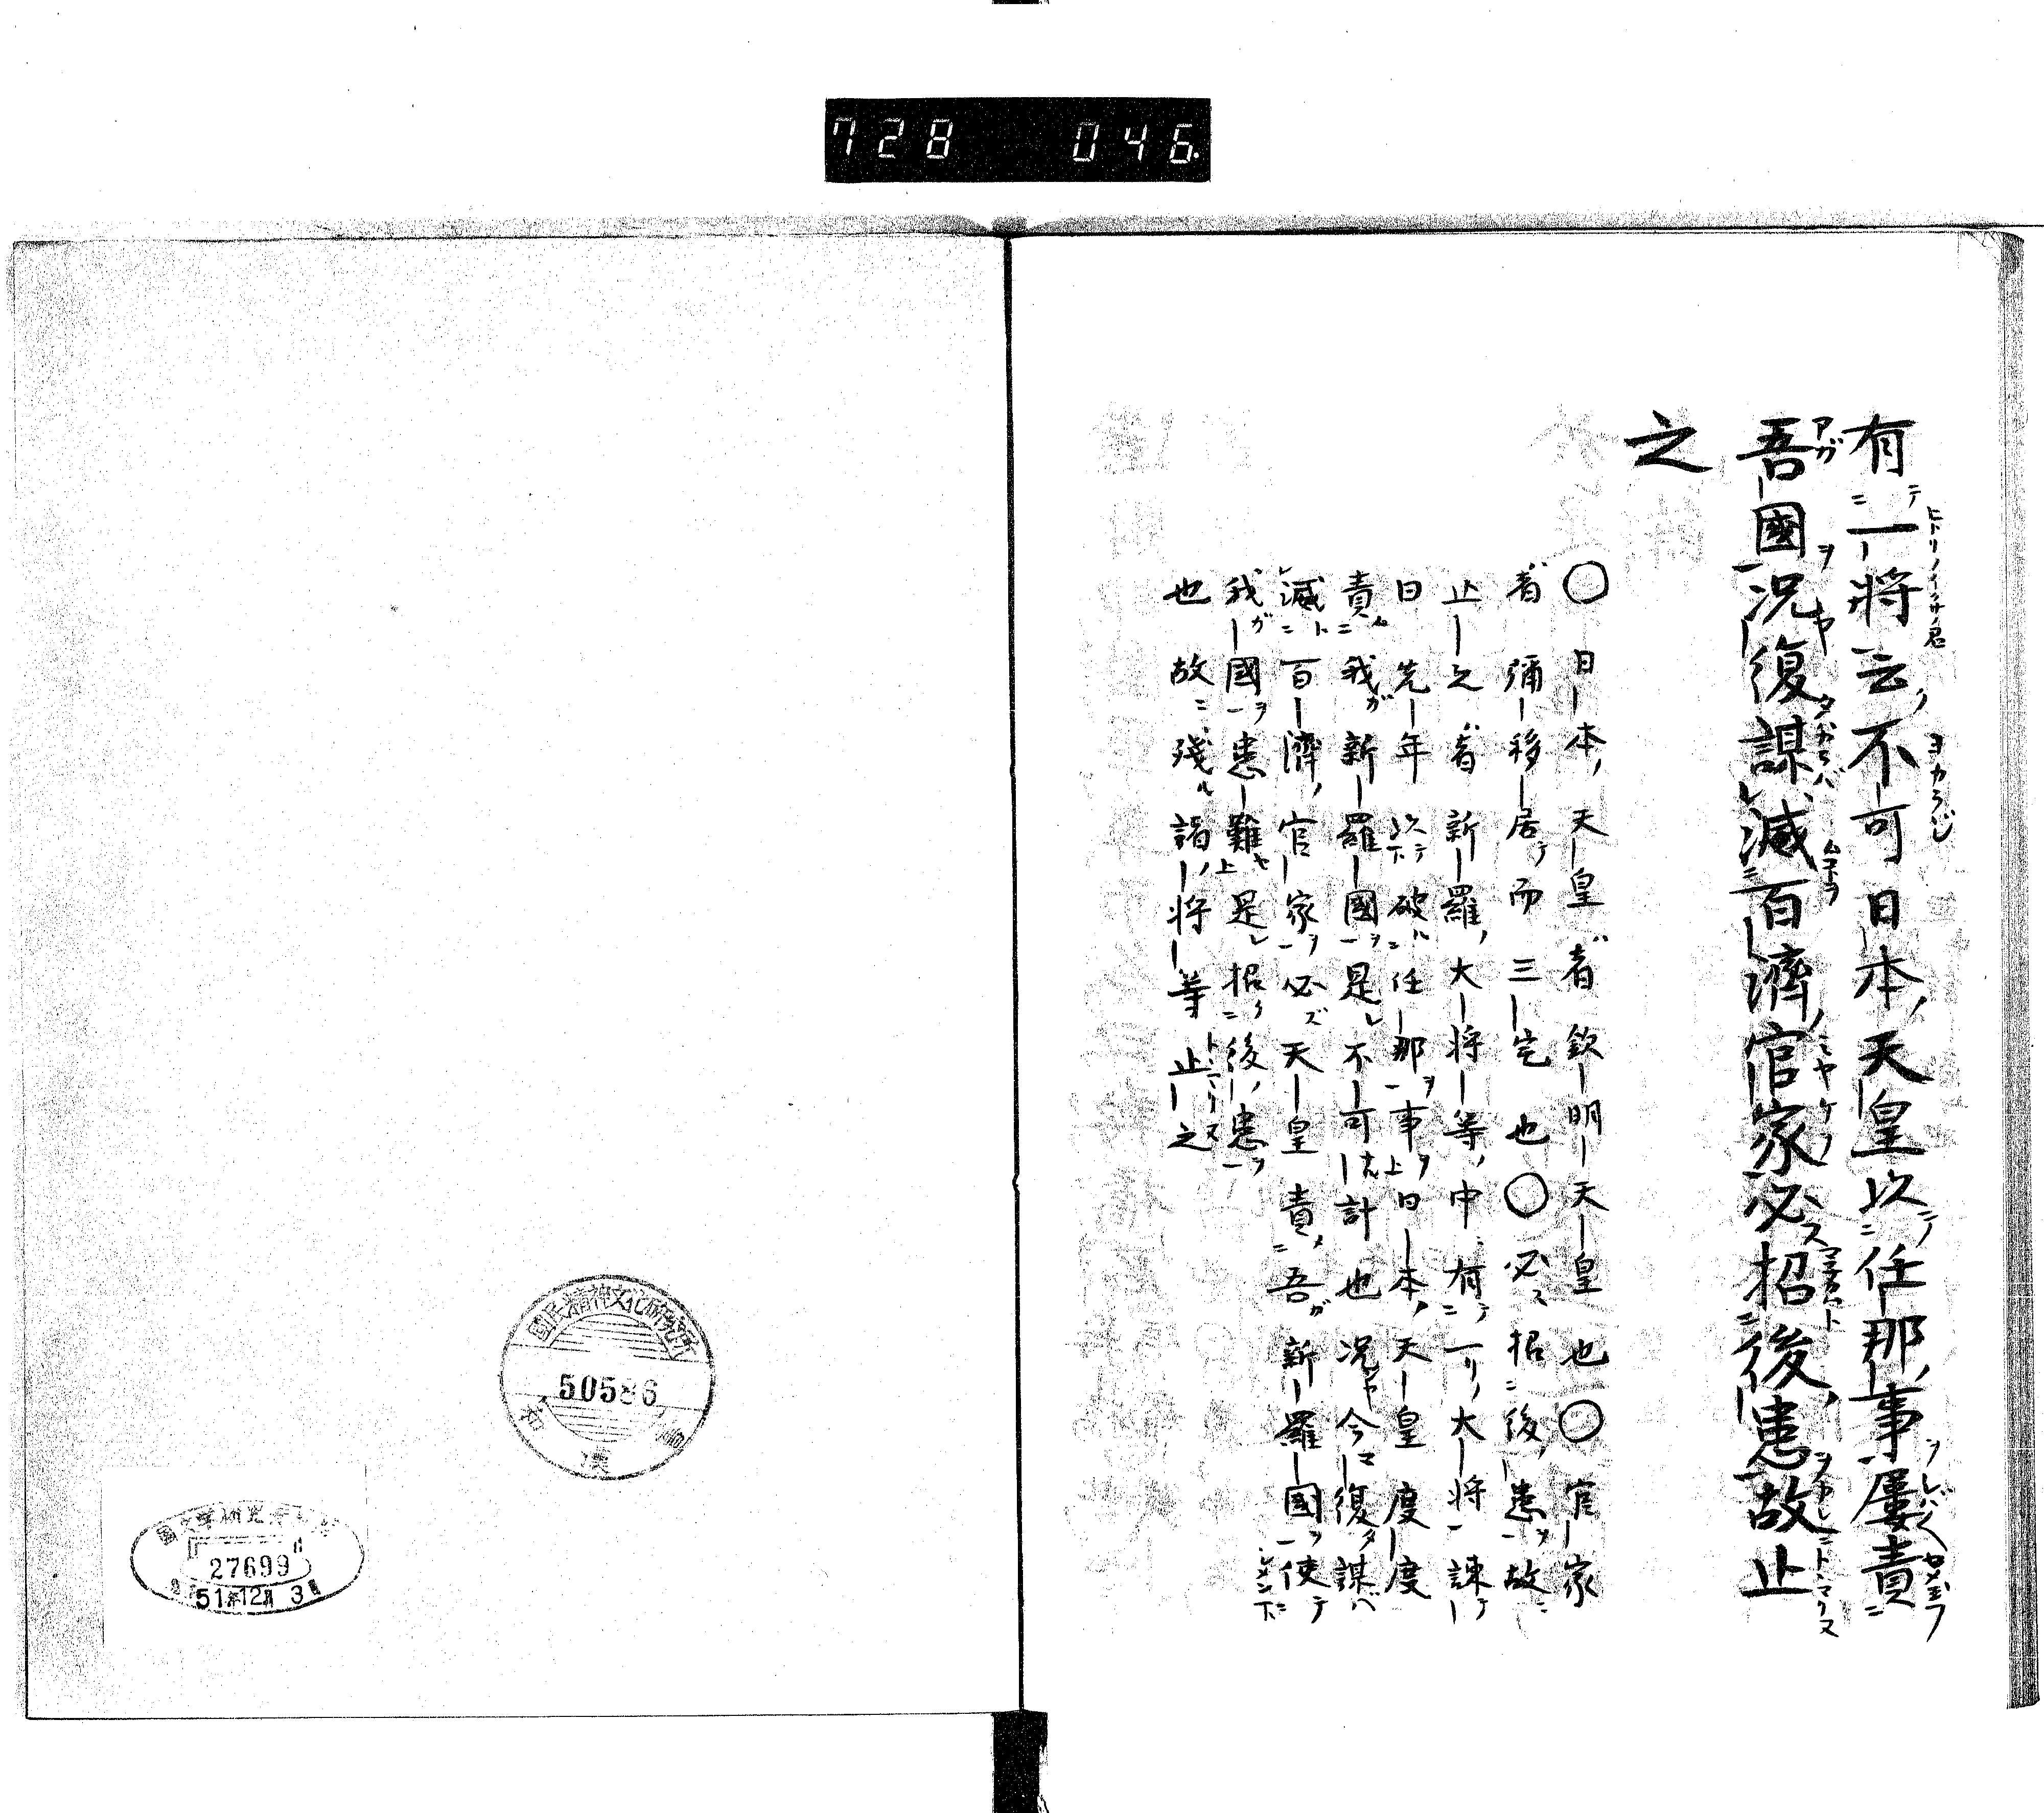 728 046
有一将云不可日本天皇以任那事屢責
吾國況復謀滅百濟官家必招後患故止
之
○日本天皇者欽明天皇也○官家
者彌移居而三宅也○必招後患故
止之者新羅大将等中有一大将諫
曰先年以破任那事日本天皇度度
責我新羅國是不可計也況今復謀
滅百濟官家必天皇責吾新羅國使
我國患難是招後患
也故殘諸将等止之
國民精神文化研究所
50586
27699
51年12月3日